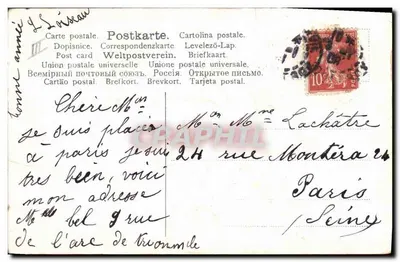 Bonne année
Carte postale. Postkarte. Cartolina postale.
Dopisnice. Correspondenzkarte. Levelező-Lap.
Post card Weltpostverein. Briefkort.
Union postale universelle. Unione postale universale.
Всемірный почтовый союзъ. Россія. Открытое письмо.
Cartão postal. Brefkort. Brevkort. Tarjeta postal.
10
Chère Mme
je suis placé
à paris je sui
tres been, voici
mon adresse
Mlle bel 9 rue
de l'arc de trionmde
Mon Mme Lachâtre
24 rue Montéra 24
Paris
(Seine)